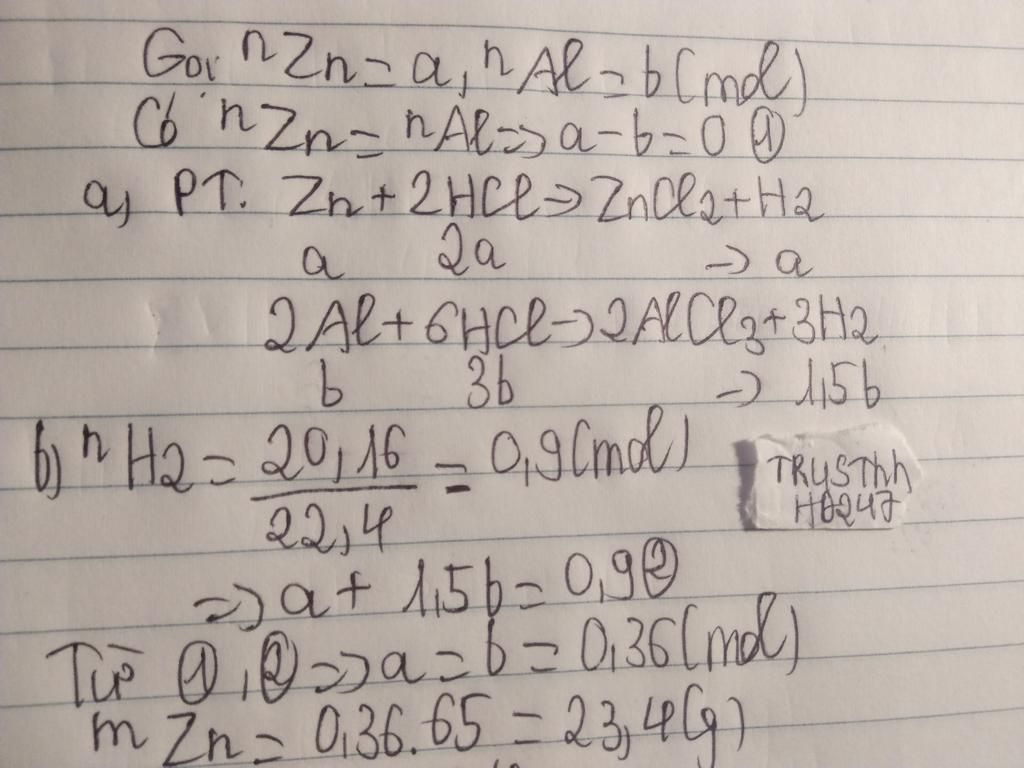 Gọi nZn = a, nAl = b (mol)
Có nZn = nAl => a - b = 0 ①
a, PT. Zn + 2HCl => ZnCl2 + H2
a 2a -> a
2Al + 6HCl -> 2AlCl3 + 3H2
b 3b -> 1,5b
b) nH2 = 20,16 / 22,4 = 0,9 (mol)
TRYSThh
HĐ247
=> a + 1,5b = 0,9 ②
Từ ①, ② => a = b = 0,36 (mol)
mZn = 0,36.65 = 23,4 (g)